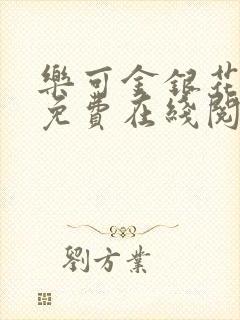 樂可金銀花
免費在綫閱
劉方業